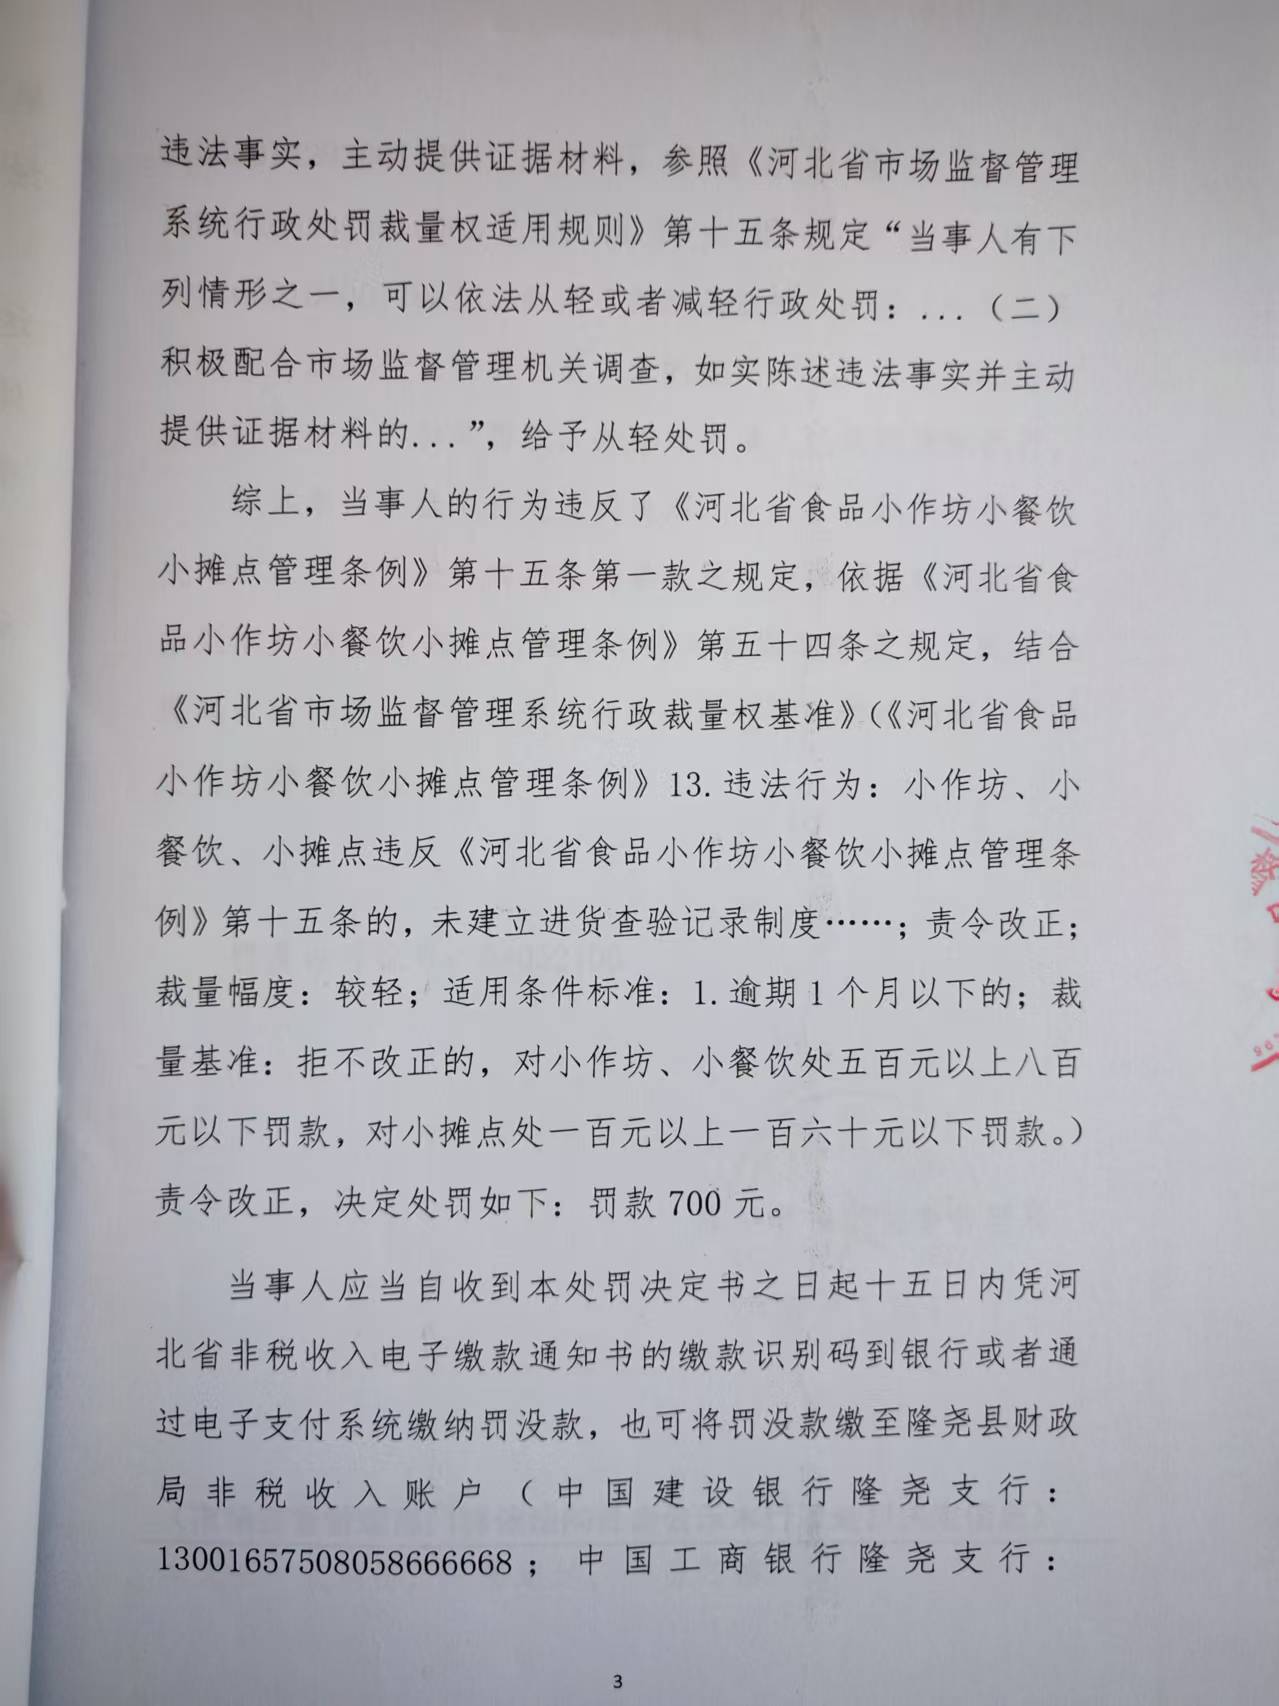 违法事实，主动提供证据材料，参照《河北省市场监督管理
系统行政处罚裁量权适用规则》第十五条规定“当事人有下
列情形之一，可以依法从轻或者减轻行政处罚：...（二）
积极配合市场监督管理机关调查，如实陈述违法事实并主动
提供证据材料的...”，给予从轻处罚。
综上，当事人的行为违反了《河北省食品小作坊小餐饮
小摊点管理条例》第十五条第一款之规定，依据《河北省食
品小作坊小餐饮小摊点管理条例》第五十四条之规定，结合
《河北省市场监督管理系统行政裁量权基准》（《河北省食品
小作坊小餐饮小摊点管理条例》13.违法行为：小作坊、小
餐饮、小摊点违反《河北省食品小作坊小餐饮小摊点管理条
例》第十五条的，未建立进货查验记录制度……；责令改正；
裁量幅度：较轻；适用条件标准：1.逾期1个月以下的；裁
量基准：拒不改正的，对小作坊、小餐饮处五百元以上八百
元以下罚款，对小摊点处一百元以上一百六十元以下罚款。）
责令改正，决定处罚如下：罚款700元。
当事人应当自收到本处罚决定书之日起十五日内凭河
北省非税收入电子缴款通知书的缴款识别码到银行或者通
过电子支付系统缴纳罚没款，也可将罚没款缴至隆尧县财政
局非税收入账户（中国建设银行隆尧支行：
13001657508058666668；中国工商银行隆尧支行：
3